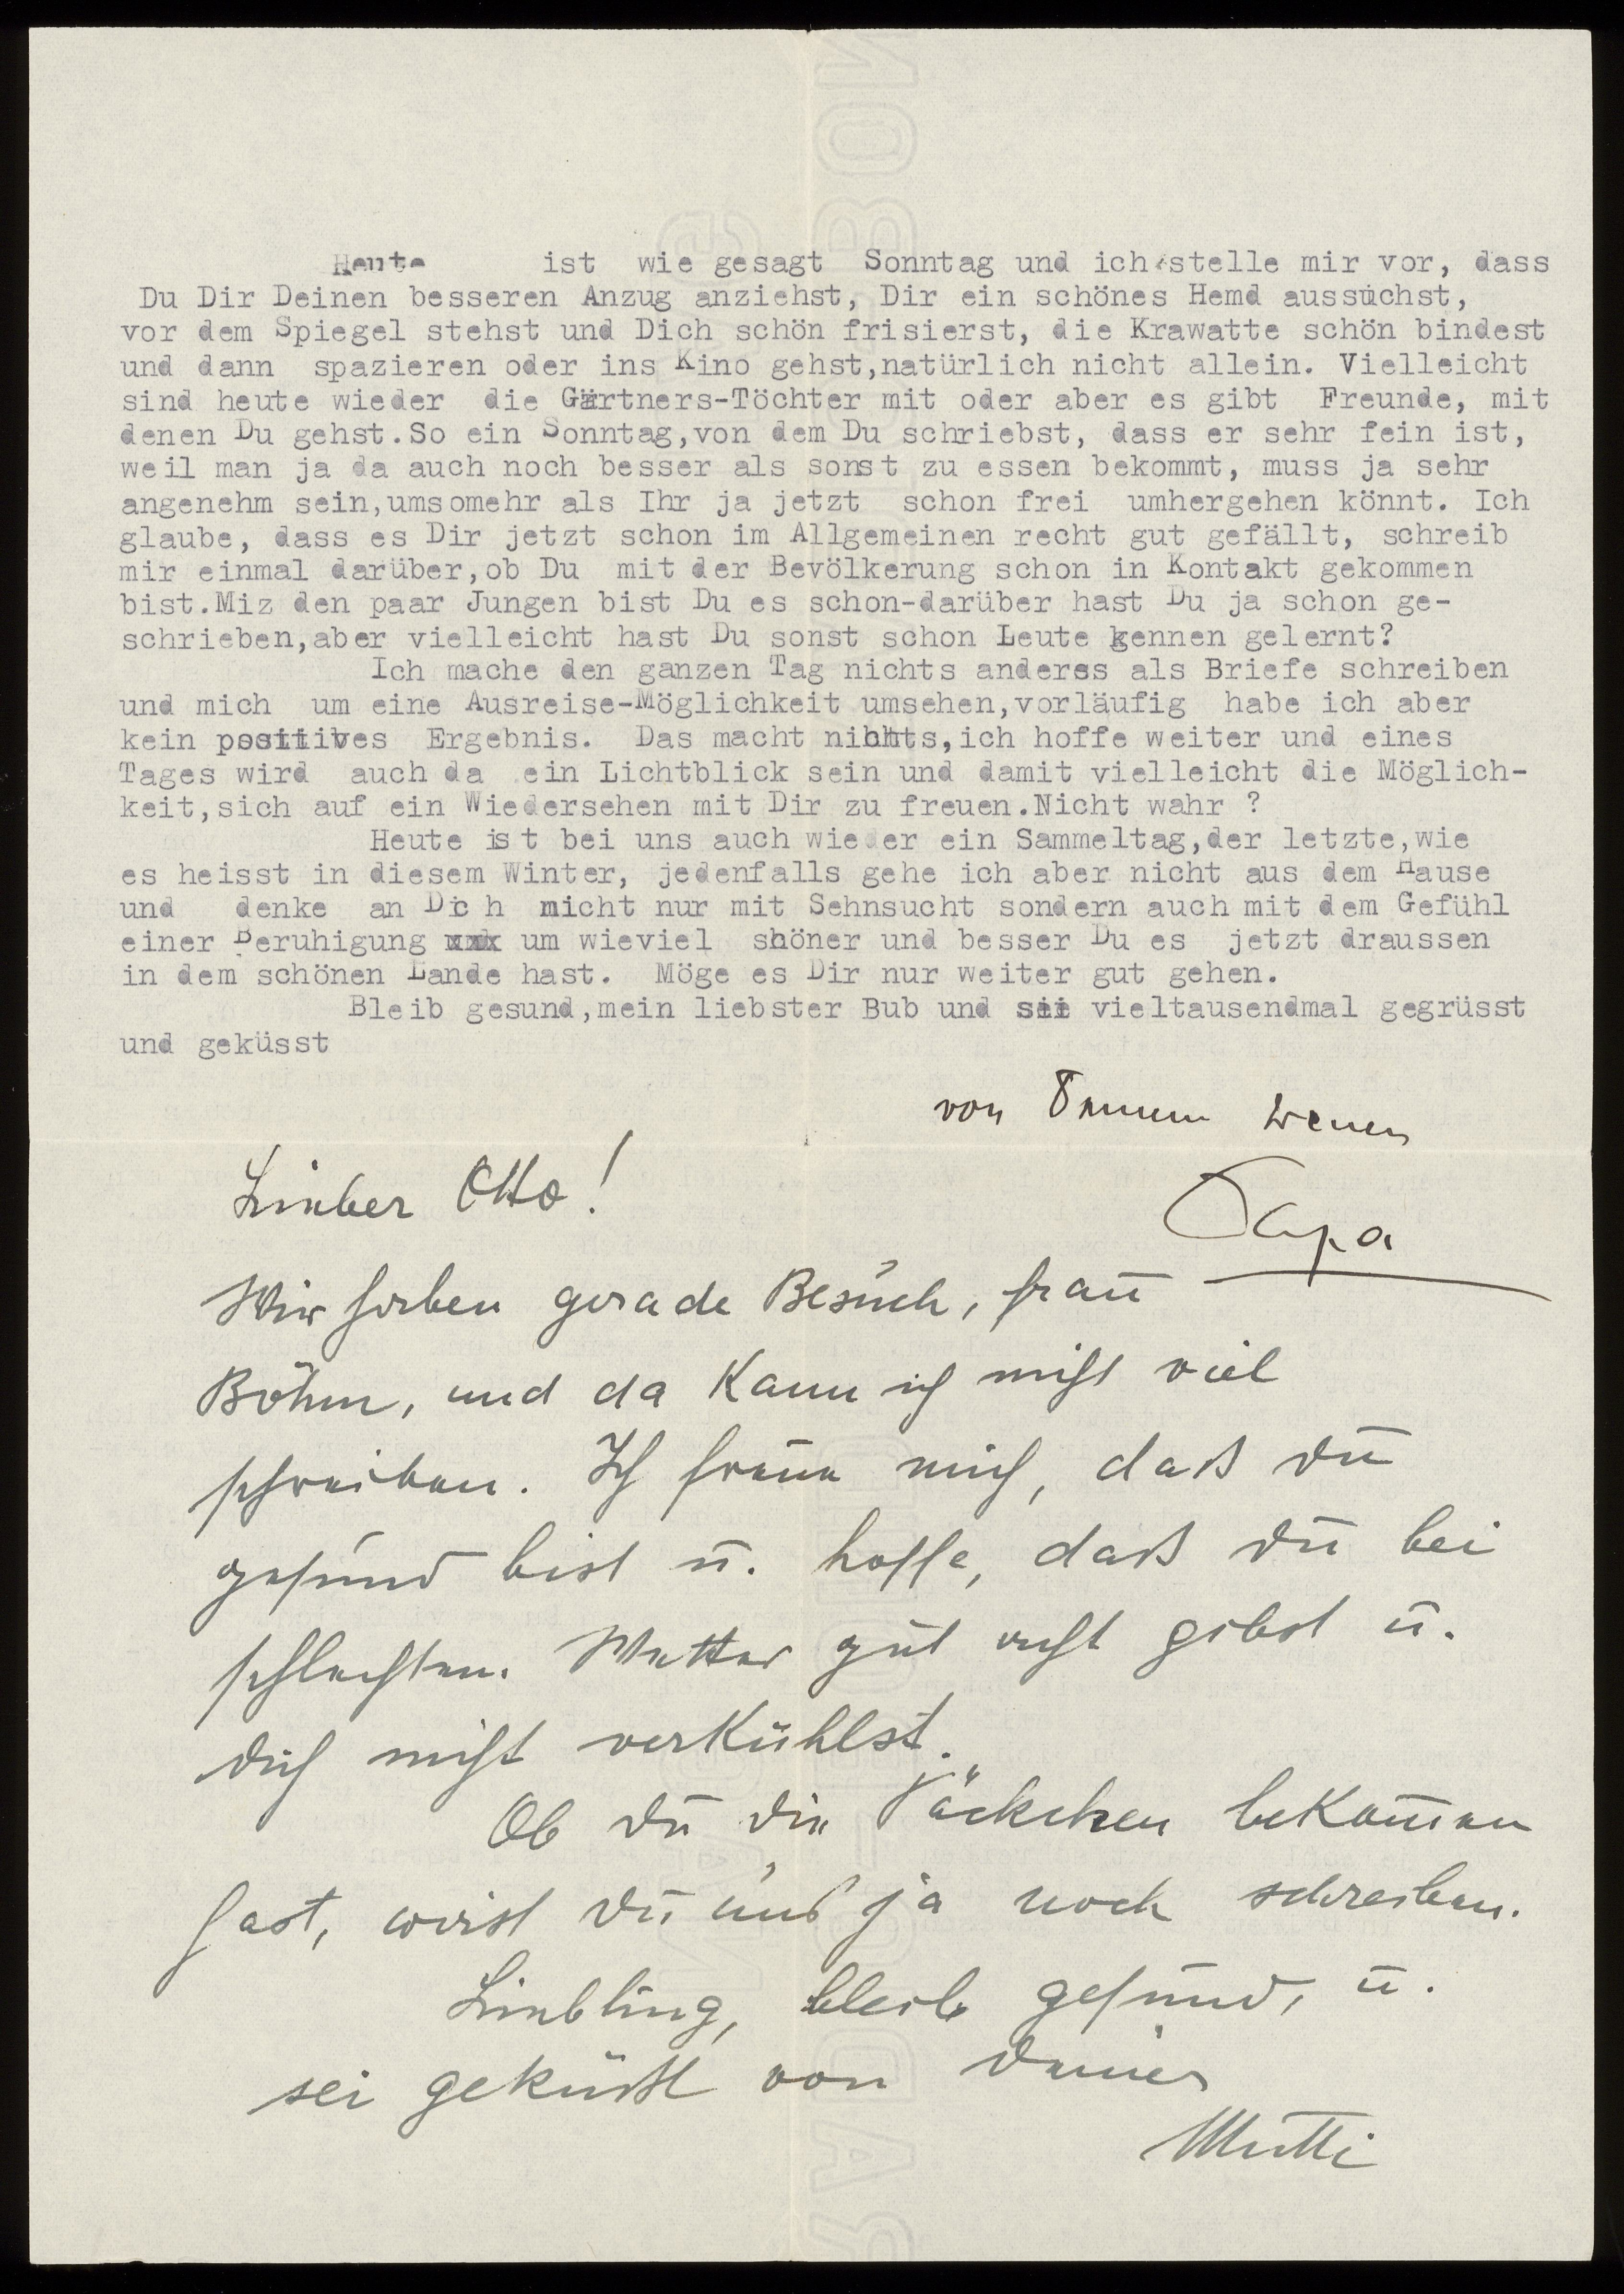 Heute ist wie gesagt Sonntag und ich stelle mir vor, dass
Du Dir Deinen besseren Anzug anziehst, Dir ein schönes Hemd aussuchst,
vor dem Spiegel stehst und Dich schön frisierst, die Krawatte schön bindest
und dann spazieren oder ins Kino gehst,natürlich nicht allein. Vielleicht
sind heute wieder die Gärtners-Töchter mit oder aber es gibt Freunde, mit
denen Du gehst.So ein Sonntag,von dem Du schriebst, dass er sehr fein ist,
weil man ja da auch noch besser als sonst zu essen bekommt, muss ja sehr
angenehm sein,umsomehr als Ihr ja jetzt schon frei umhergehen könnt. Ich
glaube, dass es Dir jetzt schon im Allgemeinen recht gut gefällt, schreib
mir einmal darüber,ob Du mit der Bevölkerung schon in Kontakt gekommen
bist.Miz den paar Jungen bist Du es schon-darüber hast Du ja schon ge-
schrieben,aber vielleicht hast Du sonst schon Leute kennen gelernt?
Ich mache den ganzen Tag nichts anderes als Briefe schreiben
und mich um eine Ausreise-Möglichkeit umsehen,vorläufig habe ich aber
kein positives Ergebnis. Das macht nichts,ich hoffe weiter und eines
Tages wird auch da ein Lichtblick sein und damit vielleicht die Möglich-
keit,sich auf ein Wiedersehen mit Dir zu freuen.Nicht wahr ?
Heute ist bei uns auch wieder ein Sammeltag,der letzte,wie
es heisst in diesem Winter, jedenfalls gehe ich aber nicht aus dem Hause
und denke an Dich nicht nur mit Sehnsucht sondern auch mit dem Gefühl
einer Beruhigung xxx um wieviel shöner und besser Du es jetzt draussen
in dem schönen Lande hast. Möge es Dir nur weiter gut gehen.
Bleib gesund,mein liebster Bub und sei vieltausendmal gegrüsst
und geküsst
von Deinem treuen
Papa
Lieber Otto!
Wir haben gerade Besuch, Frau
Böhm, und da kann ich nicht viel
schreiben. Ich freue mich, daß Du
gesund bist u. hoffe, daß Du bei
schlechten. Wetter gut acht gibst u.
Dich nicht verkühlst.
Ob Du die Päckchen bekom̄en
hast, wirst Du uns ja noch schreiben.
Liebling, bleib gesund, u.
sei geküßt von Deiner
Mutti